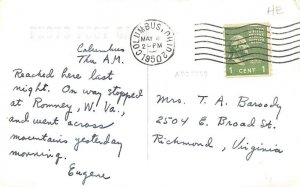 HE
PHOTO POST CARD
COLUMBUS, OHIO
MAY
2-PM
1950
1 CENT 1
Columbus
Thu A.M.
Reached here last
night. On way stopped
at Romney, W. Va.,
and went across
mountains yesterday
morning.
Eugene
Mrs. T. A. Baroody
2504 E. Broad St.
Richmond, Virginia